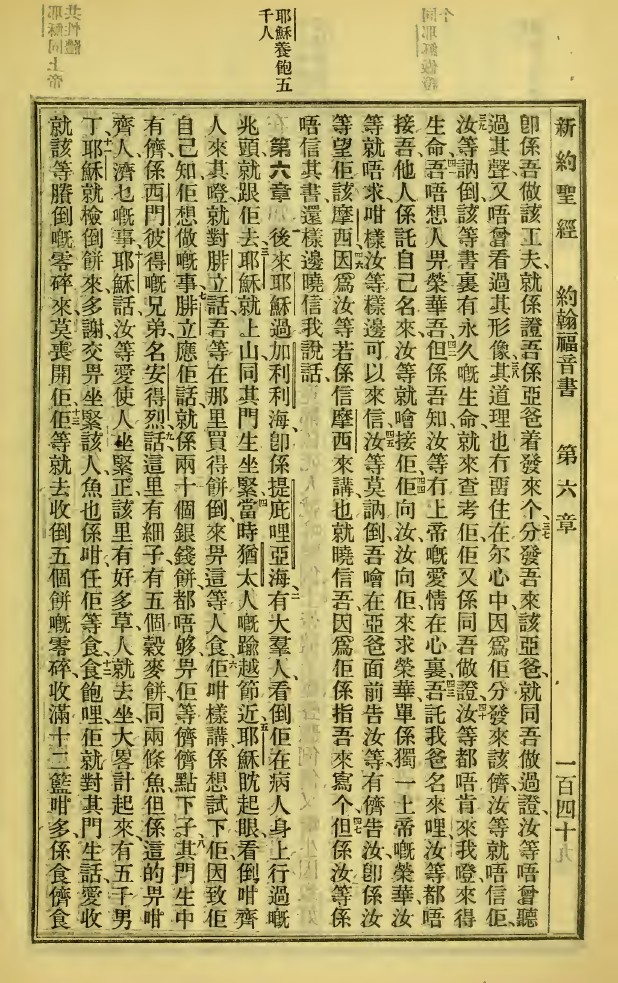 耶穌養飽五
千人
新約聖經 約翰福音書 第六章 一百四十九
卽係吾做該工夫就係證吾係亞爸着發來个分發吾來該亞爸就同吾做過證汝等唔曾聽
過其聲又唔曾看過其形像其道理也冇畱住在尔心中因爲佢分發來該儕汝等就唔信佢
汝等訥倒該等書裏有永久嘅生命就來查考佢佢又係同吾做證汝等都唔肯來我嶝來得
生命吾唔想人畀榮華吾但係吾知汝等冇上帝嘅愛情在心裏吾託我爸名來哩汝等都唔
接吾他人係託自己名來汝等就噲接佢佢向汝汝向佢來求榮華單係獨一上帝嘅榮華汝
等就唔求咁樣汝等樣邊可以來信汝等莫訥倒吾噲在亞爸面前告汝等有儕告汝卽係汝
等望佢該摩西因爲汝等若係信摩西來講也就曉信吾因爲佢係指吾來寫个但係汝等係
唔信其書還樣邊曉信我說話
第六章 後來耶穌過加利利海卽係提庇哩亞海有大羣人看倒佢在病人身上行過嘅
兆頭就跟佢去耶穌就上山同其門生坐緊當時猶太人嘅踰越節近耶穌眈起眼看倒咁齊
人來其嶝就對腓立話吾等在那里買得餅倒來畀這等人食佢咁樣講係想試下佢因致佢
自己知佢想做嘅事腓立應佢話就係兩十個銀錢餅都唔够畀佢等儕儕點下子其門生中
有儕係西門彼得嘅兄弟名安得烈話這里有細子有五個穀麥餅同兩條魚但係這的畀咁
齊人濟乜嘅事耶穌話汝等愛使人坐緊正該里有好多草人就去坐大畧計起來有五千男
丁耶穌就檢倒餅來多謝交畀坐緊該人魚也係咁任佢等食食飽哩佢就對其門生話愛收
就該等賸倒嘅零碎來莫喪開佢佢等就去收倒五個餅嘅零碎收滿十二籃咁多係食儕食